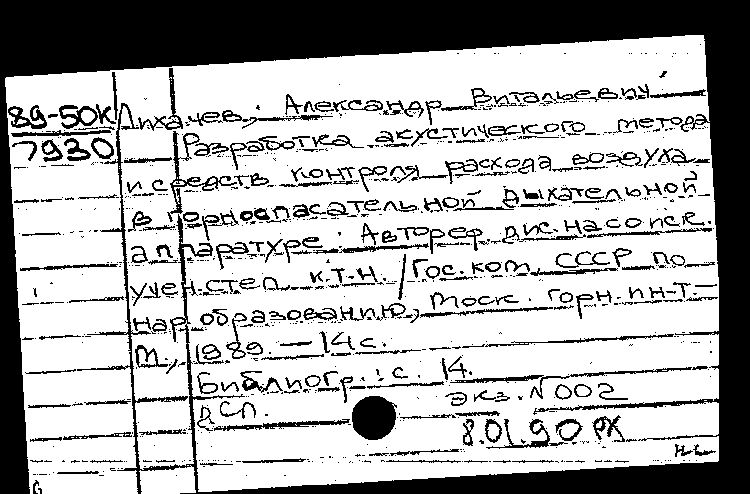 89-50К Лихачев, Александр Витальевич
7930 Разработка акустического метода
и средств контроля расхода воздуха
в горноспасательной дыхательной
аппаратуре : Автореф дис. на соиск.
учен. степ. к.т.н. / Гос. ком. СССР по
нар образованию, Моск. горн. ин-т. —
М., 1989. — 14 с.
Библиогр.: с. 14.
ДСП. экз. N 002
8.01.90 РХ